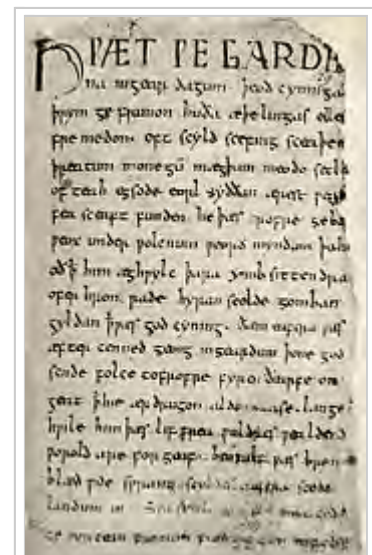 HǷÆT ǷE GARDE
na ingear dagum þeod cyninga
þrym ge frunon huða æþelingas elle
fre medon. oft scyld scefing sceaþen
þreatum monegū mægþum meodo setla
of teah egsode eorl syððan ærest ƿearð
fea sceaft funden he þæs frofre geba
ƿeox under ƿolcnum ƿeorð myndum þah
oð ꝥ him æghƿylc þara ymb sittendra
ofer hron rade hyran scolde gomban
gyldan ꝥ ƿæs god cyning. ðæm eafera ƿæs
æfter cenned geong ingeardum þone god
sende folce tofrofre fyren ðearfe on
geat ꝥ hie ær drugon aldor ase. lange
hƿile him þæs lif frea ƿuldres ƿealdend
ƿorold are for geaf. beoƿulf ƿæs breme
blæd ƿide sprang scyldes eafera scede
landum in
ge ƿyrcean fromum